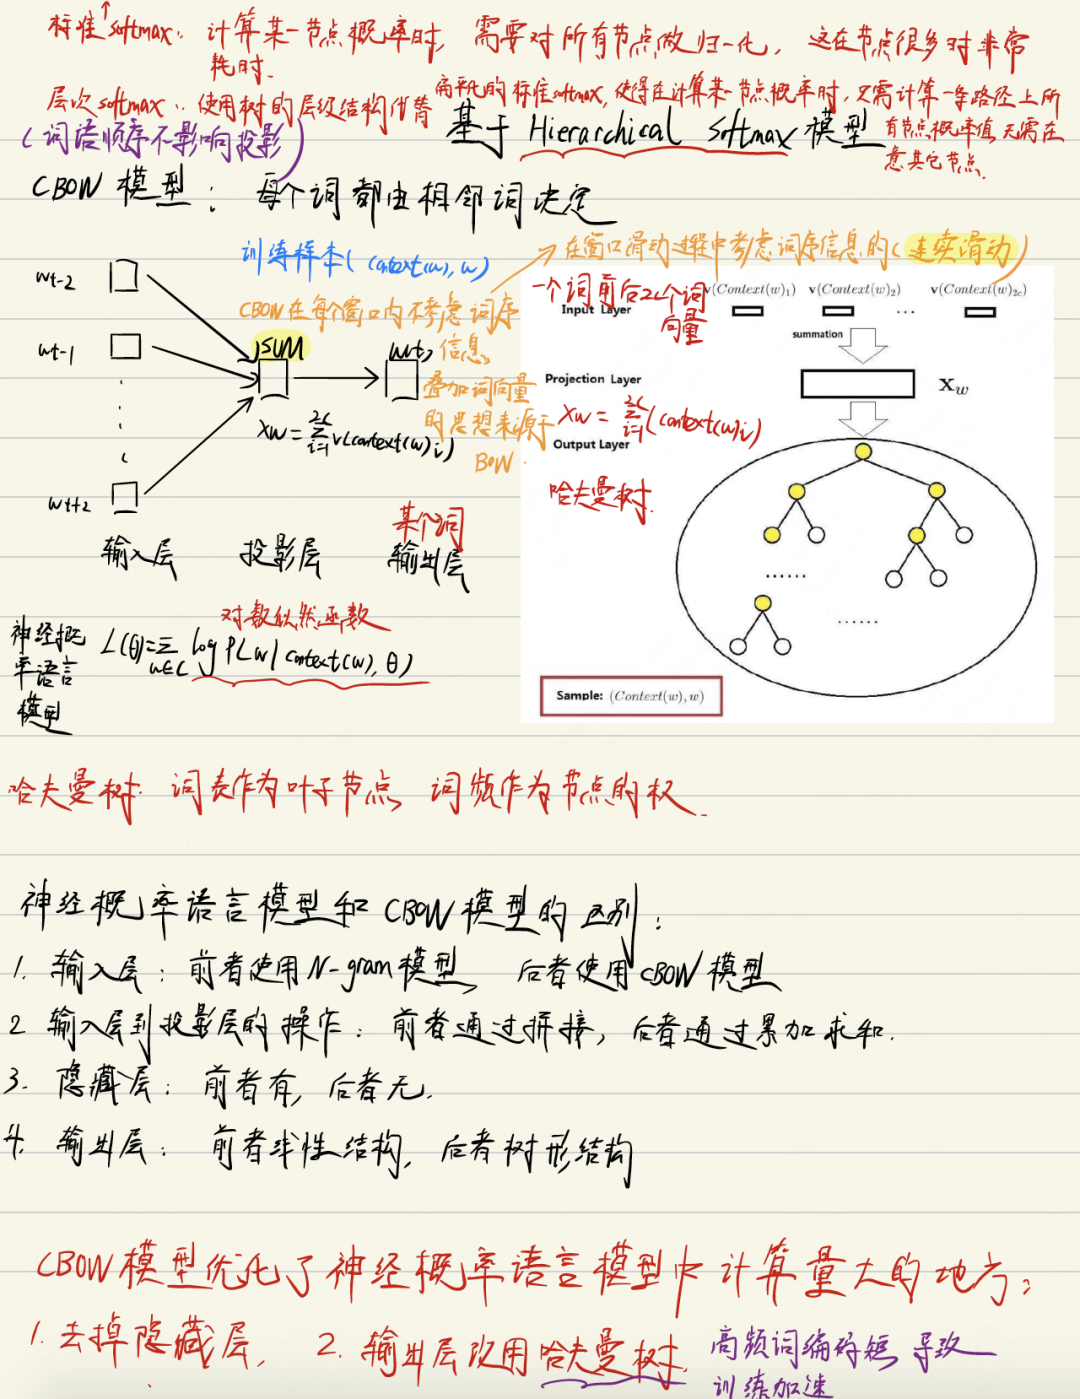 标准softmax: 计算某一节点概率时, 需要对所有节点做归一化, 这在节点很多时非常
耗时.
层次softmax: 使用树的层级结构代替
高耗的标准softmax, 使得在计算某一节点概率时, 只需计算一条路径上所
有节点概率值, 无需在
意其它节点.
(词语顺序不影响投影)
基于 Hierarchical Softmax 模型
CBOW 模型: 每个词都由相邻词决定
训练样本( Context(w), w)
在窗口滑动过程中考虑词序信息的(连续滑动)
CBOW在每个窗口内不考虑词序
信息,
叠加词向量
的思想来源于
BOW.
wt-2
wt-1
wt+2
SUM
wt
Xw = Σ(i=1→2c) v(context(w)i)
某个词
输入层 投影层 输出层
一个词前后2c个词
向量
v(Context(w)₁) v(Context(w)₂) ... v(Context(w)₂c)
Input Layer
summation
Projection Layer
Xw
Xw = Σ(i=1→2c) (context(w)i)
Output Layer
哈夫曼树.
......
......
Sample: (Context(w), w)
对数似然函数
神经概
率语言
模型
L(θ)=Σ(w∈C) log P(w| context(w), θ)
哈夫曼树: 词表作为叶子节点, 词频作为节点的权.
神经概率语言模型和 CBOW 模型的区别:
1. 输入层: 前者使用 N-gram 模型, 后者使用 CBOW 模型
2 输入层到投影层的操作: 前者通过拼接, 后者通过累加求和.
3. 隐藏层: 前者有, 后者无.
4. 输出层: 前者线性结构, 后者树形结构
CBOW 模型优化了神经概率语言模型中计算量大的地方:
1. 去掉隐藏层, 2. 输出层改用哈夫曼树,
高频词编码短, 导致
训练加速